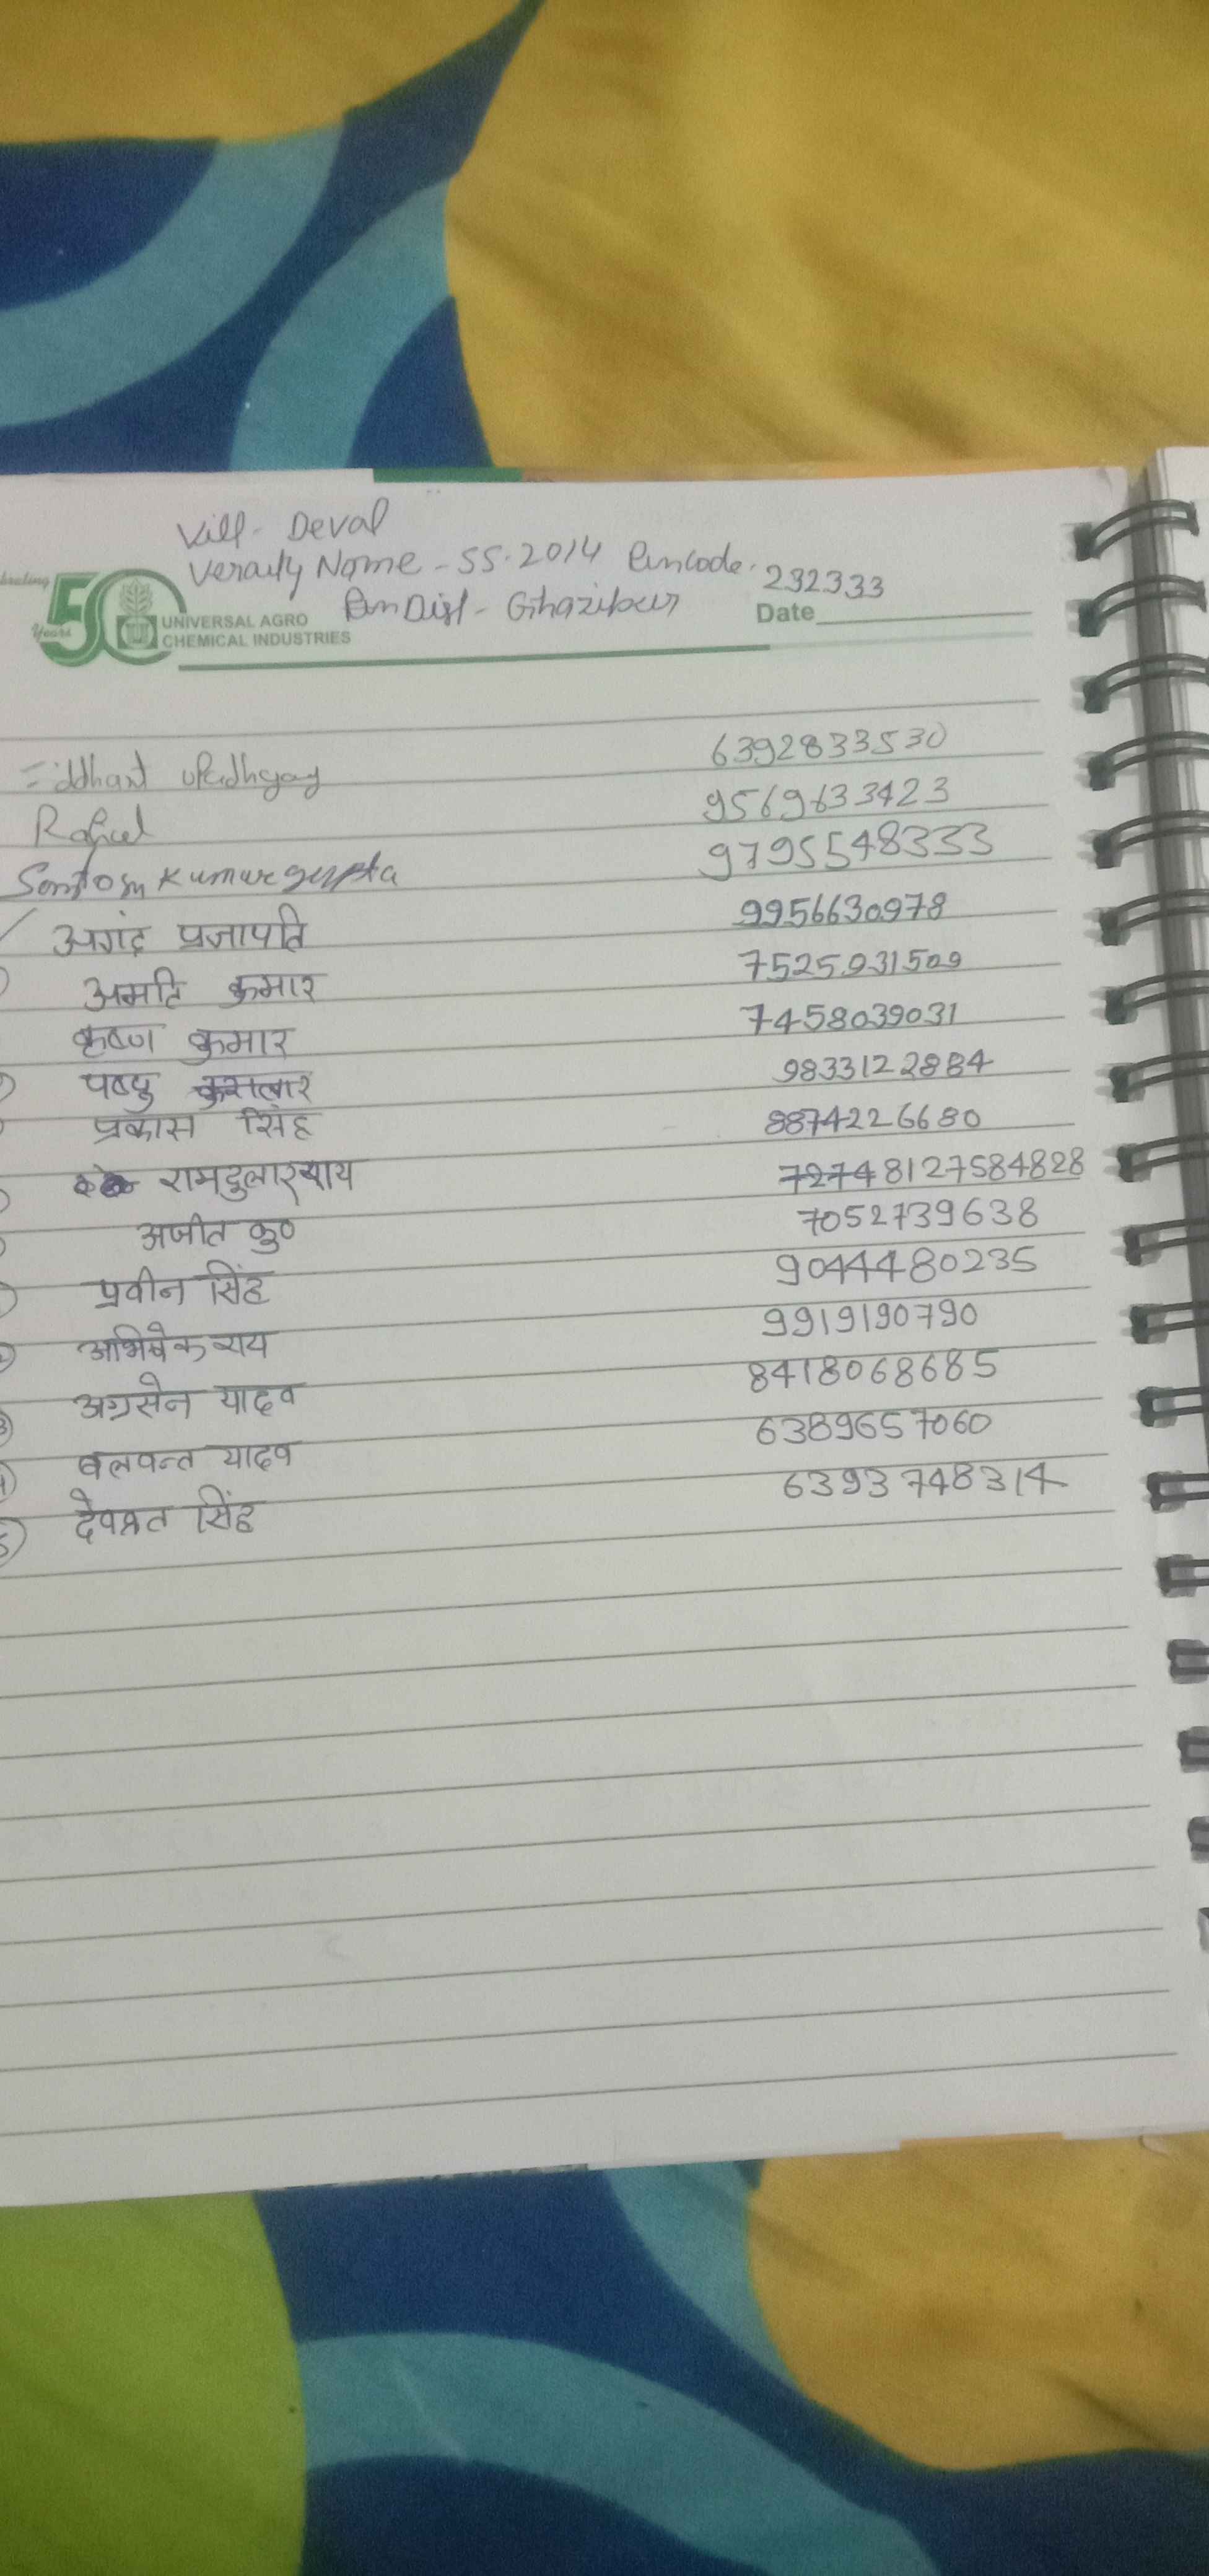 Vill- Deval
Veraity Name - SS-2014 Pincode. 232333
Dist - Ghazipur
50 Years
UNIVERSAL AGRO
CHEMICAL INDUSTRIES
Date
iddhant upadhyay 6392833530
Rahul 9569633423
Santosh Kumar gupta 9795548333
अगंद प्रजापति 9956630978
अमति कुमार 7525931509
कृष्ण कुमार 7458039031
पप्पु 9833122884
प्रकास सिंह 8874226680
रामदुलार राय 72748127584828
अजीत कु० 7052739638
प्रवीन सिंह 9044480235
अभिषेक राय 9919190790
अग्रसेन यादव 8418068685
बलवन्त यादव 6389657060
देवव्रत सिंह 6393748314